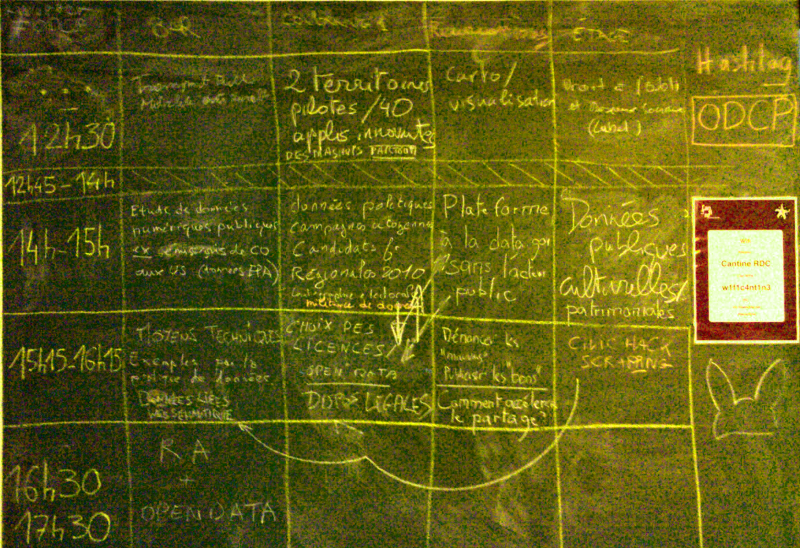 #ODCP
BAR
ÉTAGE
Hashtag
ODCP
12h30
2 territoires
pilotes / 40
applis innovantes
DES MASHUPS PARTOUT
Carto /
visualisation
Droit à l'
et
(Label)
12h45-14h
14h-15h
Etude de données
numériques publiques
ex émissions de CO
aux US (données EPA)
données politiques
Campagne citoyenne
Candidats
Régionales 2010
politique de
Plateforme
à la data gov
sans l'acteur
public
Données
publiques
culturelles/
patrimoniales
Cantine RDC
w1f1c4nt1n3
15h15-16h15
MOYENS TECHNIQUES
Exemples sur la
de données
DONNÉES LIÉES
WEB SÉMANTIQUE
CHOIX DES
LICENCES/
OPEN DATA
DISPOS LÉGALES
Dénoncer les
"mauvais"
Publier les "bons"
Comment accélérer
le partage
CIVIC HACK
SCRAPPING
16h30
17h30
RA
+
OPENDATA